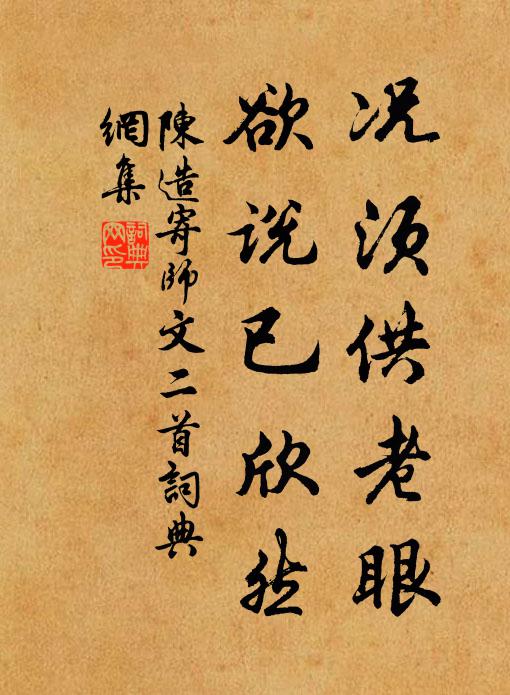 况须供老眼
欲説已欣然
陳造寄師文二首詞典
網集
詞典
网印